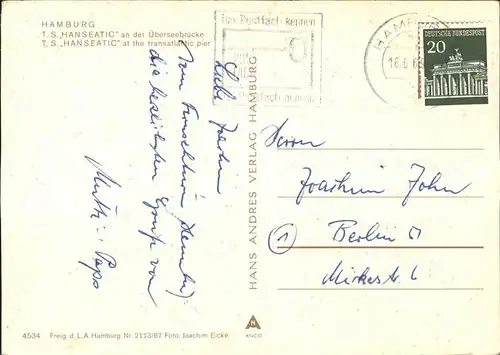 HAMBURG
T. S. „HANSEATIC" an der Überseebrücke
T. S. „HANSEATIC" at the transatlantic pier
Das Postfach kennen
HAMBURG
DEUTSCHE BUNDESPOST
20
Liebe
Vom Fernsehturm
die herzlichsten Grüße von
Mutti u. Papa
HANS ANDRES VERLAG HAMBURG
Herrn
Joachim John
1 Berlin 51
Mickestr. 6
4534 Freig. d. L.A. Hamburg Nr. 2113/67 Foto: Joachim Eicke
H
ANCO